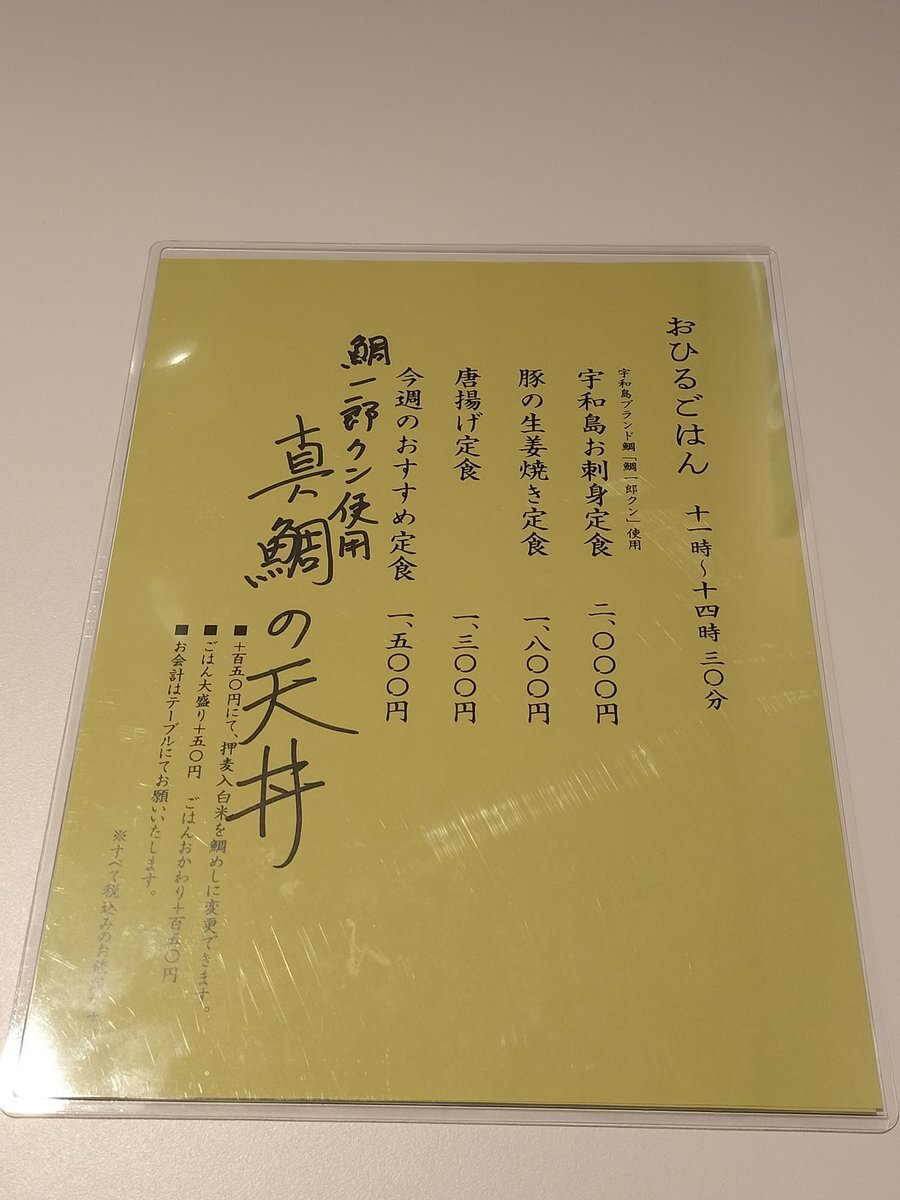 おひるごはん 十一時~十四時三〇分
宇和島ブランド鯛「鯛一郎クン」使用
宇和島お刺身定食 二、〇〇〇円
豚の生姜焼き定食 一、八〇〇円
唐揚げ定食 一、三〇〇円
今週のおすすめ定食 一、五〇〇円
鯛一郎クン使用
真鯛の天丼
■+百五〇円にて、押麦入白米を鯛めしに変更できます。
■ごはん大盛り+五〇円 ごはんおかわり+百五〇円
■お会計はテーブルにてお願いいたします。
※すべて税込みのお値段です